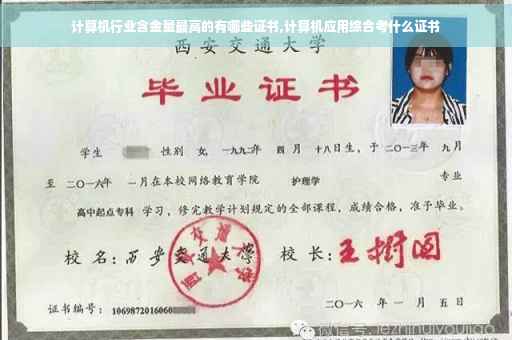 计算机行业含金量最高的有哪些证书,计算机应用综合考什么证书
西安交通大学
毕业证书
学生 性别 女, 一九九二年 四月 十八日生, 于二〇一三年 九月
至 二〇一六年 一月在本校网络教育学院 护理学 专业
高中起点专科 学习, 修完教学计划规定的全部课程, 成绩合格, 准予毕业。
校名: 西安交通大学 校长: 王树国
西安交通大学
证书编号: 1069872016060
二〇一六年一月五日
微信号: jiezhinuiyoujiao